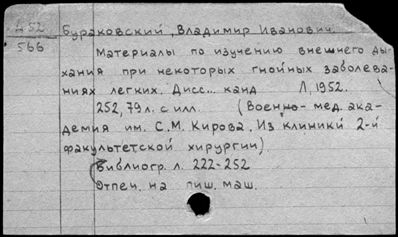 Д52 Бураковский, Владимир Иванович.
566 Материалы по изучению внешнего ды-
хания при некоторых гнойных заболева-
ниях легких. Дисс... канд Л, 1952.
252, 79 л. с илл. (Военно-мед. ака-
демия им. С.М. Кирова. Из клиники 2-й
факультетской хирургии).
Библиогр. л. 222-252
Отпеч. на пиш. маш.